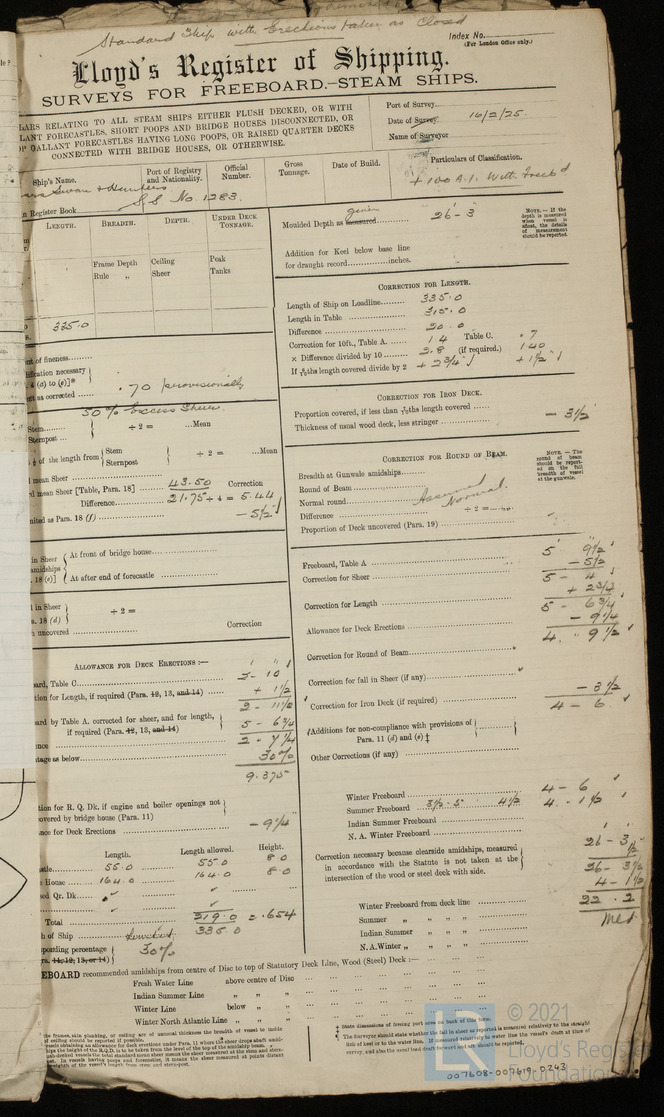 Standard Ship with Erections taken as Closed
Index No.
(For London Office only.)
Lloyd's Register of Shipping.
SURVEYS FOR FREEBOARD.—STEAM SHIPS.
LARS RELATING TO ALL STEAM SHIPS EITHER FLUSH DECKED, OR WITH
LANT FORECASTLES, SHORT POOPS AND BRIDGE HOUSES DISCONNECTED, OR
GALLANT FORECASTLES HAVING LONG POOPS, OR RAISED QUARTER DECKS
CONNECTED WITH BRIDGE HOUSES, OR OTHERWISE.
Port of Survey
Date of Survey 16/2/25.
Name of Surveyor
Ship's Name.
Port of Registry and Nationality.
Official Number.
Gross Tonnage.
Date of Build.
Particulars of Classification.
Swan & Hunters
S.S. No. 1283.
+100 A.1. With Freeb'd
n Register Book
LENGTH. BREADTH. DEPTH. UNDER DECK TONNAGE.
Frame Depth Ceiling Peak
Rule „ Sheer Tanks
335.0
nt of fineness
ification necessary
nt as corrected .70 provisionally
50% Excess Sheer.
Stem ÷ 2 = Mean
Sternpost
of the length from Stem ÷ 2 = Mean
Sternpost
l mean Sheer
rd mean Sheer [Table, Para. 18] 43.50 Correction
Difference 21.75 ÷ 4 = 5.44
nited as Para. 18 (f) - 5½
in Sheer At front of bridge house
amidships
. 18 (e)] At after end of forecastle
l in Sheer ÷ 2 =
a. 18 (d)
n uncovered Correction
ALLOWANCE FOR DECK ERECTIONS :—
ard, Table C 2- 10
tion for Length, if required (Para. 12, 13, and 14) + 1½
2 - 11½
ard by Table A. corrected for sheer, and for length,
if required (Para. 12, 13, and 14) 5 - 6¾
nce 2 - 7¼
tage as below 30%
9.375
tion for R. Q. Dk. if engine and boiler openings not
covered by bridge house (Para. 11)
nce for Deck Erections - 9¼
Length. Length allowed. Height.
stle 55.0 55.0 8 0
House 164.0 164.0 8 0
ed Qr. Dk.
Total 219.0 = .654
h of Ship 335.0
sponding percentage 30%
ra. 11, 12, 13, or 14)
Moulded Depth as measured given 26 - 3
NOTE.—If the depth is measured when vessel is afloat, the details of measurement should be reported.
Addition for Keel below base line
for draught record inches.
CORRECTION FOR LENGTH.
Length of Ship on Loadline 335.0
Length in Table 315.0
Difference 20.0
Correction for 10ft., Table A. 1.4 Table C. .7
× Difference divided by 10 2.8 (if required.) 1.40
If ths length covered divide by 2 + 2¾ + 1½
CORRECTION FOR IRON DECK.
Proportion covered, if less than ths length covered
Thickness of usual wood deck, less stringer - 3½
CORRECTION FOR ROUND OF BEAM.
NOTE.—The round of beam should be reported on the full breadth of vessel at the gunwale.
Breadth at Gunwale amidships
Round of Beam
Normal round Assumed Normal.
Difference ÷ 2 =
Proportion of Deck uncovered (Para. 19)
Freeboard, Table A 5 9½
Correction for Sheer - 5½
5 - 4
Correction for Length + 2¾
5 - 6¾
Allowance for Deck Erections - 9¼
4 " 9½
Correction for Round of Beam
Correction for fall in Sheer (if any)
Correction for Iron Deck (if required) - 3½
4 - 6
Additions for non-compliance with provisions of
Para. 11 (d) and (e) ‡
Other Corrections (if any)
Winter Freeboard 4 - 6
Summer Freeboard 4½ 4 - 1½
Indian Summer Freeboard
N. A. Winter Freeboard
Correction necessary because clearside amidships, measured
in accordance with the Statute is not taken at the
intersection of the wood or steel deck with side.
26 - 3
½
26 - 3½
4 - 1½
22 . 2
Winter Freeboard from deck line
Summer „ „ „ „
Indian Summer „ „ „
N. A. Winter „ „ „ „
EBOARD recommended amidships from centre of Disc to top of Statutory Deck Line, Wood (Steel) Deck :—
Fresh Water Line above centre of Disc
Indian Summer Line „ „
Winter Line below „ „
Winter North Atlantic Line „ „ „
‡ State dimensions of freeing port area on back of this form.
007608-007619-0243
© 2021
LR
Lloyd's Register
Foundation